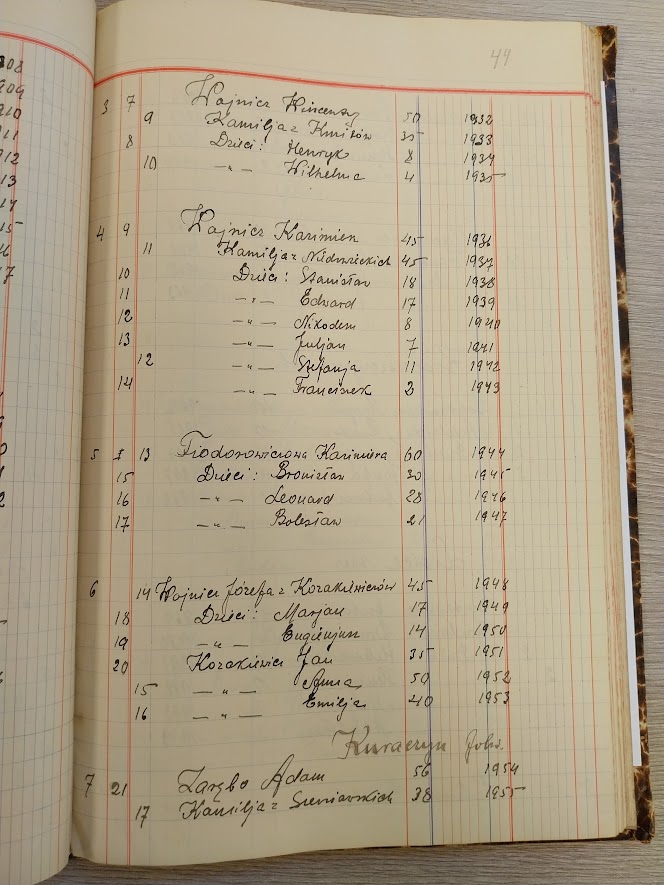 44
3 7 Wojnicz Wincenty 50 1932
9 Kamilja z Kmitów 35 1933
8 Dzieci: Henryk 8 1934
10 -„- Wilhelma 4 1935
4 9 Wojnicz Kazimierz 45 1936
11 Kamilja z 45 1937
10 Dzieci: Stanisław 18 1938
11 -„- Edward 17 1939
12 -„- Nikodem 8 1940
13 -„- Juljan 7 1941
12 -„- Stefanja 11 1942
14 -„- Franciszek 2 1943
5 13 Fiodorowiczowa Kazimiera 60 1944
15 Dzieci: Bronisław 30 1945
16 -„- Leonard 28 1946
17 -„- Bolesław 21 1947
6 14 Wojnicz Józefa z Korakiewiczów 45 1948
18 Dzieci: Marjan 17 1949
19 -„- Eugienjusz 14 1950
20 Korakiewicz Jan 35 1951
15 -„- Anna 50 1952
16 -„- Emilja 40 1953
Kuraczyn folw.
7 21 Zarębo Adam 56 1954
17 Kamilja z Sieniawskich 38 1955